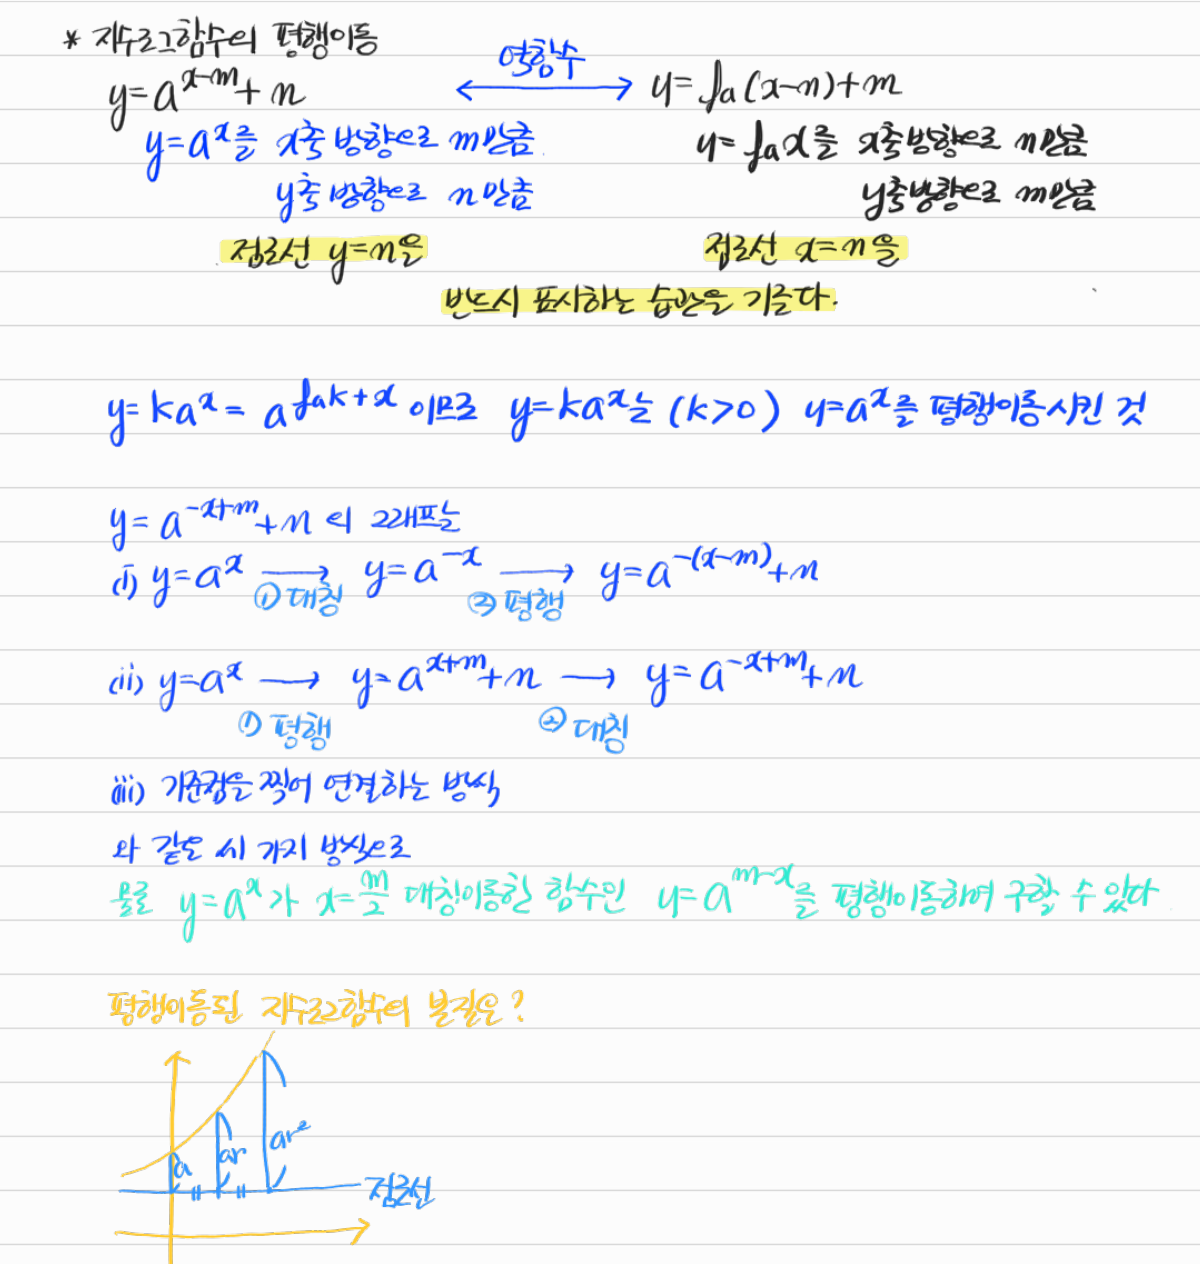 * 지수로그함수의 평행이동
y=a^{x-m}+n
역함수
y=log_a(x-n)+m
y=a^x를 x축 방향으로 m만큼
y축 방향으로 n만큼
y=log_a x를 x축방향으로 n만큼
y축방향으로 m만큼
점근선 y=n을
점근선 x=n을
반드시 표시하는 습관을 기른다.
y=ka^x=a^{log_a k+x} 이므로 y=ka^x는 (k>0) y=a^x를 평행이동시킨 것
y=a^{-x+m}+n 의 그래프는
(i) y=a^x → y=a^{-x} → y=a^{-(x-m)}+n
① 대칭 ② 평행
(ii) y=a^x → y=a^{x+m}+n → y=a^{-x+m}+n
① 평행 ② 대칭
(iii) 기준점을 찍어 연결하는 방식
와 같은 세 가지 방식으로
물론 y=a^x가 x=m/2 대칭이동한 함수인 y=a^{m-x}를 평행이동하여 구할 수 있다
평행이동된 지수로그함수의 본질은?
a ar ar²
점근선